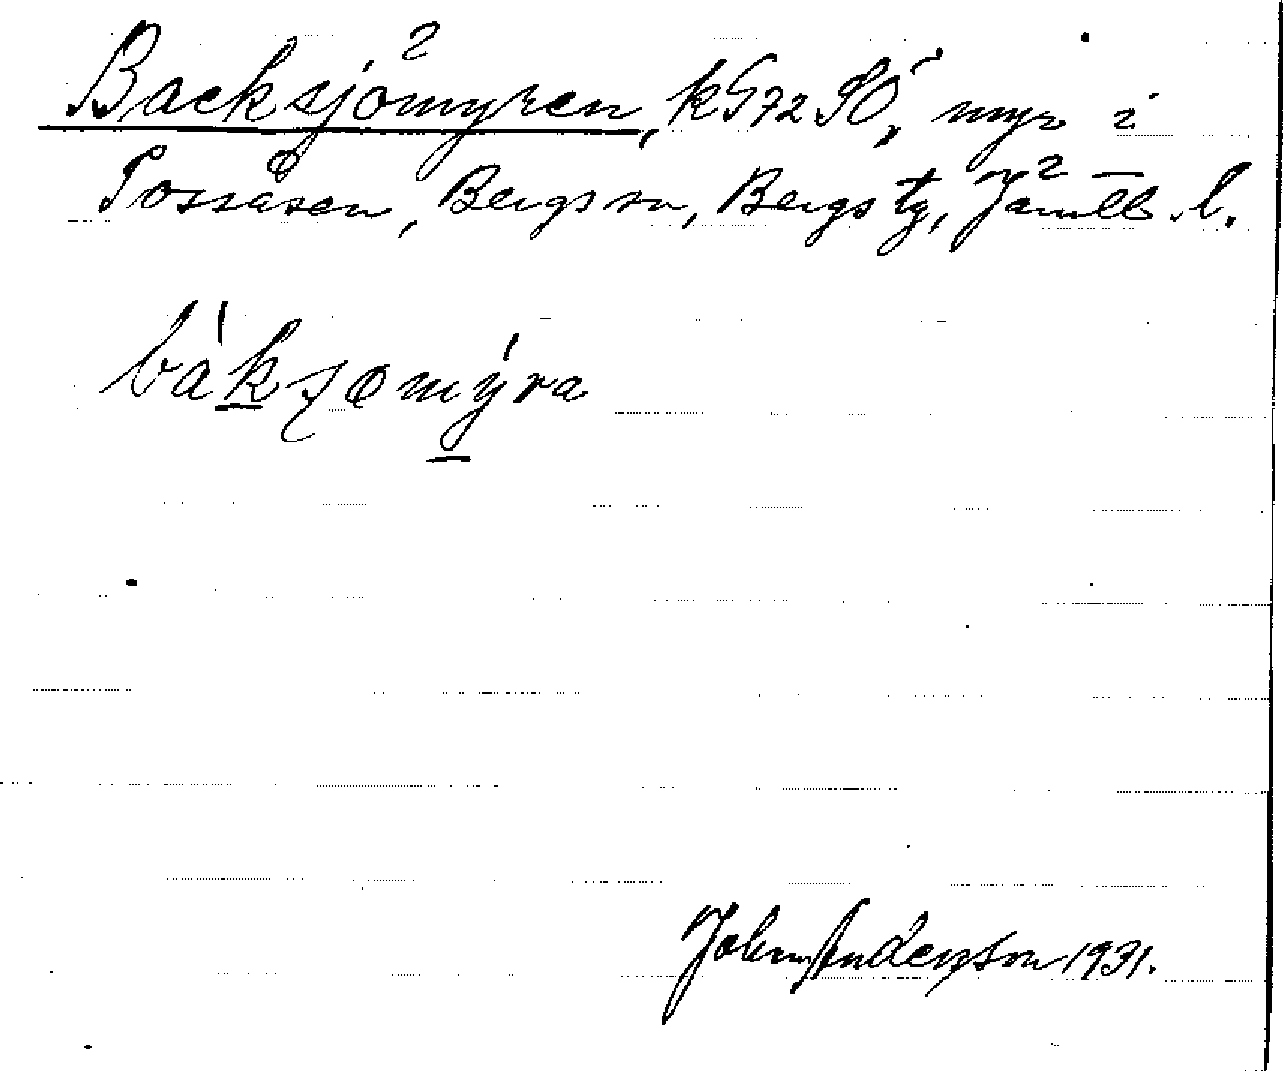 Backsjömyren, kG72 SÖ, myr i
Tossåsen, Bergs sn, Bergs tg, Jämtl. l.
ba'ksomy'ra
John Anderson 1931.